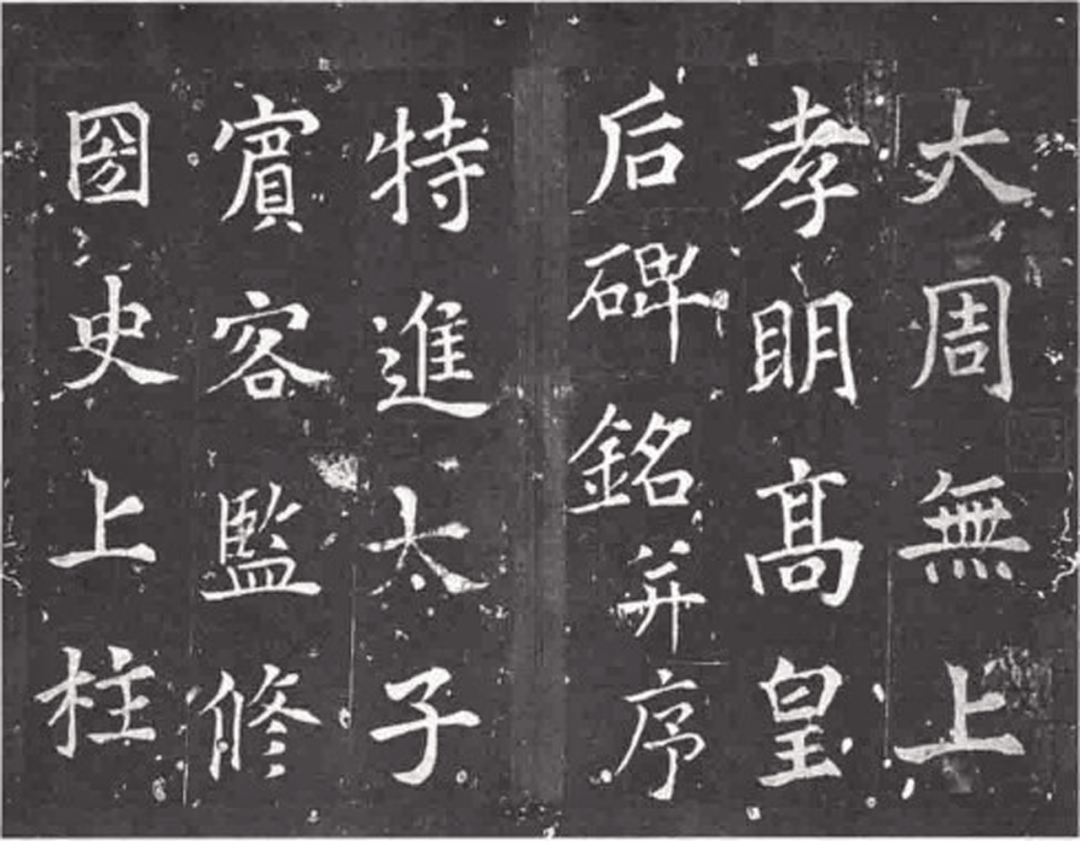 大周無上
孝眀髙皇
后碑銘并序
特進太子
賓客監修
圀史上柱